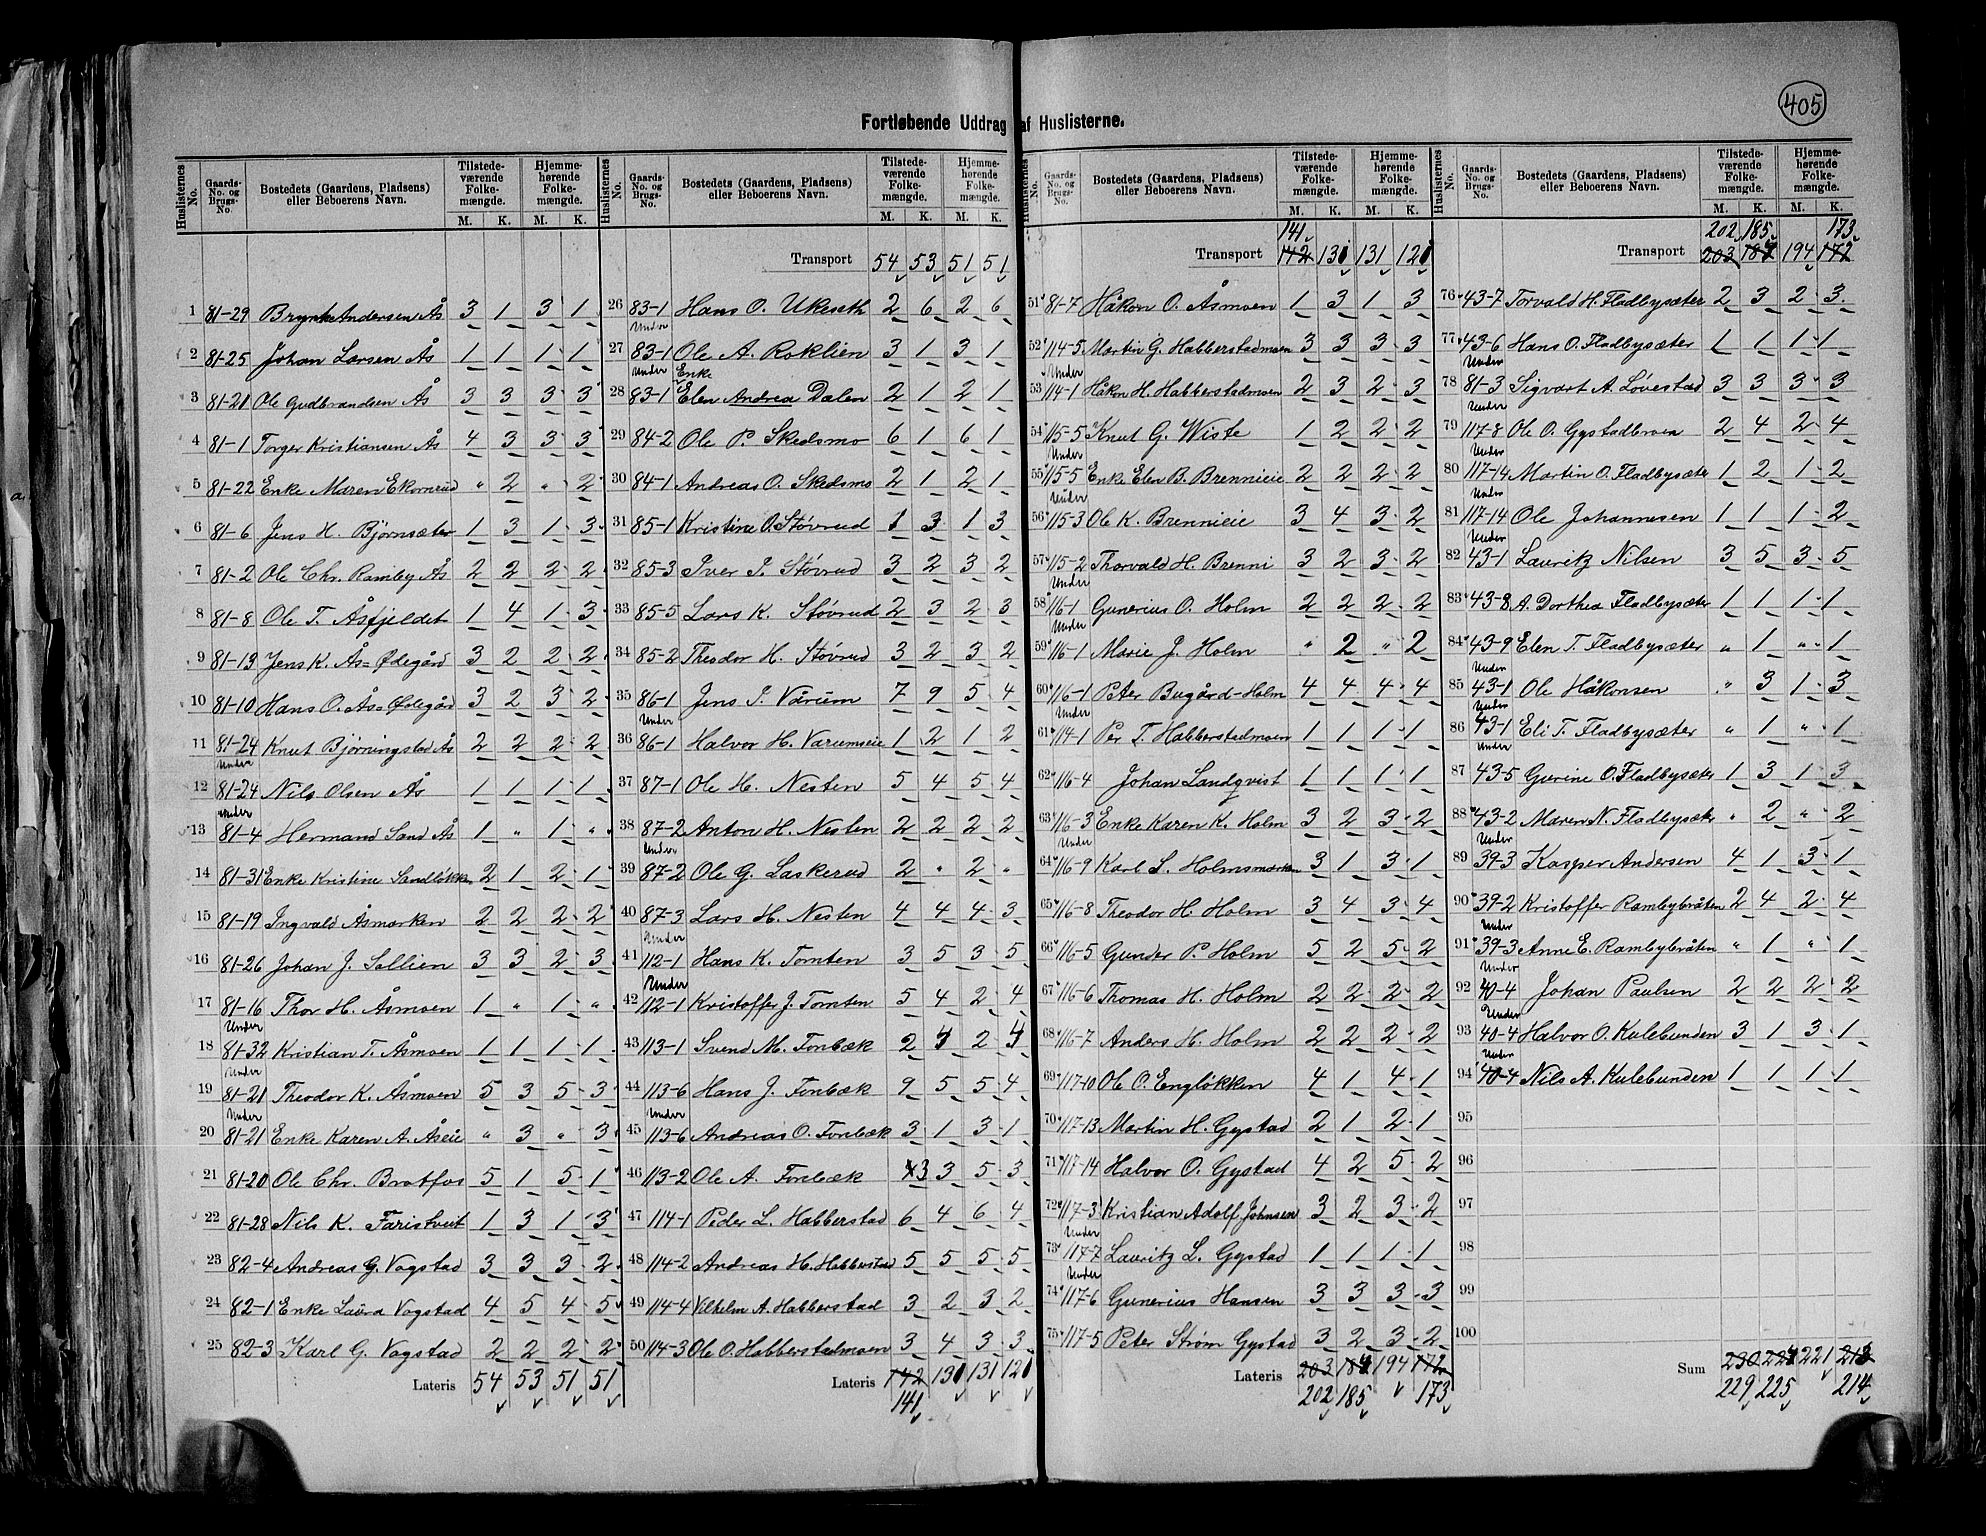 405
Fortløbende Uddrag af Huslisterne.
Huslisternes No. | Gaards-No. og Brugs-No. | Bostedets (Gaardens, Pladsens) eller Beboerens Navn. | Tilstedeværende Folkemængde. M. K. | Hjemmehørende Folkemængde. M. K.
1 81-29 Brynh Andersen Ås 3 1 3 1
2 81-25 Johan Larsen Ås 1 1 1 1
3 81-21 Ole Gudbrandsen Ås 3 3 3 3
4 81-1 Torger Kristiansen Ås 4 3 3 3
5 81-22 Enke Maren Ekornrud " 2 " 2
6 81-6 Jens H. Bjørnsæter 1 3 1 3
7 81-2 Ole Chr. Ramby Ås 2 2 2 2
8 81-8 Ole T. Åsfjeldet 1 4 1 3
9 81-13 Jens K. Ås=Ødegård 3 2 2 2
10 81-10 Hans O. Ås=Ødegård 3 2 3 2
11 81-24 Knut Bjørningstad Ås 2 2 2 2
Under
12 81-24 Nils Olsen Ås 1 1 1 1
Under
13 81-4 Hermand Sand Ås 1 " 1 "
14 81-31 Enke Kristine Sandløkken 2 1 2 1
15 81-19 Ingvald Åsmarken 2 2 2 2
16 81-26 Johan J. Sollien 3 3 2 3
17 81-16 Thor H. Åsmoen 1 " 1 "
Under
18 81-32 Kristian T. Åsmoen 1 1 1 1
Under
19 81-21 Theodor K. Åsmoen 5 3 5 3
Under
20 81-21 Enke Karen A. Åseie " 3 " 3
21 81-20 Ole Chr. Bratfos 5 1 5 1
22 81-28 Nils K. Faristveit 1 3 1 3
23 82-4 Andreas G. Vogstad 3 3 3 2
24 82-1 Enke Laura Vogstad 4 5 4 5
25 82-3 Karl G. Vogstad 2 2 2 2
Lateris 54 53 51 51
Huslisternes No. | Gaards-No. og Brugs-No. | Bostedets (Gaardens, Pladsens) eller Beboerens Navn. | Tilstedeværende Folkemængde. M. K. | Hjemmehørende Folkemængde. M. K.
Transport 54 53 51 51
26 83-1 Hans O. Ukeseth 2 6 2 6
Under
27 83-1 Ole A. Roklien 3 1 3 1
Under Enke
28 83-1 Elen Andrea Dalen 2 1 2 1
29 84-2 Ole P. Skedsmo 6 1 6 1
30 84-1 Andreas O. Skedsmo 2 1 2 1
31 85-1 Kristine O. Støvrud 1 3 1 3
32 85-3 Iver I. Støvrud 3 2 3 2
33 85-5 Lars K. Støvrud 2 3 2 3
34 85-2 Theodor H. Støvrud 3 2 3 2
35 86-1 Jens I. Vårum 7 9 5 4
Under
36 86-1 Halvor H. Varumseie 1 2 1 2
37 87-1 Ole H. Nesten 5 4 5 4
38 87-2 Anton H. Nesten 2 2 2 2
Under
39 87-2 Ole G. Laskerud 2 " 2 "
40 87-3 Lars H. Nesten 4 4 4 3
Under
41 112-1 Hans K. Tomten 3 5 3 5
Under
42 112-1 Kristoffer J. Tomten 5 4 2 4
43 113-1 Svend M. Fonbæk 2 2
44 113-6 Hans J. Fonbæk 9 5 5 4
Under
45 113-6 Andreas O. Fonbæk 3 1 3 1
46 113-2 Ole A. Fonbæk 3 3 5 3
47 114-1 Peder L. Habberstad 6 4 6 4
48 114-2 Andreas H. Habberstad 5 5 5 5
49 114-4 Vilhelm A. Habberstad 3 2 3 2
50 114-3 Ole O. Habberstadmoen 3 4 3 3
Lateris 142 130 131 120
141
Huslisternes No. | Gaards-No. og Brugs-No. | Bostedets (Gaardens, Pladsens) eller Beboerens Navn. | Tilstedeværende Folkemængde. M. K. | Hjemmehørende Folkemængde. M. K.
141
Transport 142 130 131 120
51 81-7 Håkon O. Åsmoen 1 3 1 3
52 114-5 Martin G. Habberstadmoen 3 3 3 3
Under
53 114-1 Håkon H. Habberstadmoen 2 3 2 3
54 115-5 Knut G. Wiste 1 2 2 2
Under
55 115-5 Enke Elen B. Brennieie 2 2 2 2
Under
56 115-3 Ole K. Brennieie 3 4 3 2
57 115-2 Thorvald H. Brenni 3 2 3 2
Under
58 116-1 Gunerius O. Holm 2 2 2 2
Under
59 116-1 Marie J. Holm " 2 " 2
60 116-1 Peter Bugård-Holm 4 4 4 4
Under
61 114-1 Per T. Habberstadmoen 1 1 1 1
62 116-4 Johan Landqvist 1 1 1 1
63 116-3 Enke Karen K. Holm 3 2 3 2
Under
64 116-9 Karl L. Holmsmarken 3 1 3 1
65 116-8 Theodor H. Holm 3 4 3 4
66 116-5 Gunder P. Holm 5 2 5 2
67 116-6 Thomas H. Holm 2 2 2 2
68 116-7 Anders H. Holm 2 2 2 2
69 117-10 Ole O. Engløkken 4 1 4 1
70 117-13 Martin H. Gystad 2 1 2 1
71 117-14 Halvor O. Gystad 4 2 5 2
72 117-3 Kristian Adolf Johnsen 3 2 3 2
Under
73 117-7 Lauritz L. Gystad 1 1 1 1
Under
74 117-6 Gunerius Hansen 3 3 3 3
75 117-5 Peter Strøm Gystad 3 2 3 2
Lateris 203 184 194 172
202 185 173
Huslisternes No. | Gaards-No. og Brugs-No. | Bostedets (Gaardens, Pladsens) eller Beboerens Navn. | Tilstedeværende Folkemængde. M. K. | Hjemmehørende Folkemængde. M. K.
202 185 173
Transport 203 184 194 172
76 43-7 Torvald H. Fladbysæter 2 3 2 3
77 43-6 Hans O. Fladbysæter 1 1 1 1
Under
78 81-3 Sigvart A. Løvestad 3 3 3 3
Under
79 117-8 Ole O. Gystadbroen 2 4 2 4
Under
80 117-14 Martin O. Fladbysæter 1 2 1 2
Under
81 117-14 Ole Johannesen 1 1 1 2
Under
82 43-1 Lauritz Nilsen 3 5 3 5
83 43-8 A. Dorthea Fladbysæter 1 1 1 1
84 43-9 Elen T. Fladbysæter " 1 " 1
Under
85 43-1 Ole Håkonsen " 3 1 3
Under
86 43-1 Eli T. Fladbysæter " 1 " 1
Under
87 43-5 Gurine O. Fladbysæter 1 3 1 3
88 43-2 Maren N. Fladbysæter " 2 " 2
Under
89 39-3 Kasper Andersen 4 1 3 1
90 39-2 Kristoffer Rambybråten 2 4 2 4
Under
91 39-3 Anne E. Rambybråten " 1 " 1
Under
92 40-4 Johan Paulsen 2 2 2 2
Under
93 40-4 Halvor O. Kulebunden 3 1 3 1
Under
94 40-4 Nils A. Kulebunden 1 1 1 1
95
96
97
98
99
100
Sum 230 224 221 213
229 225 214